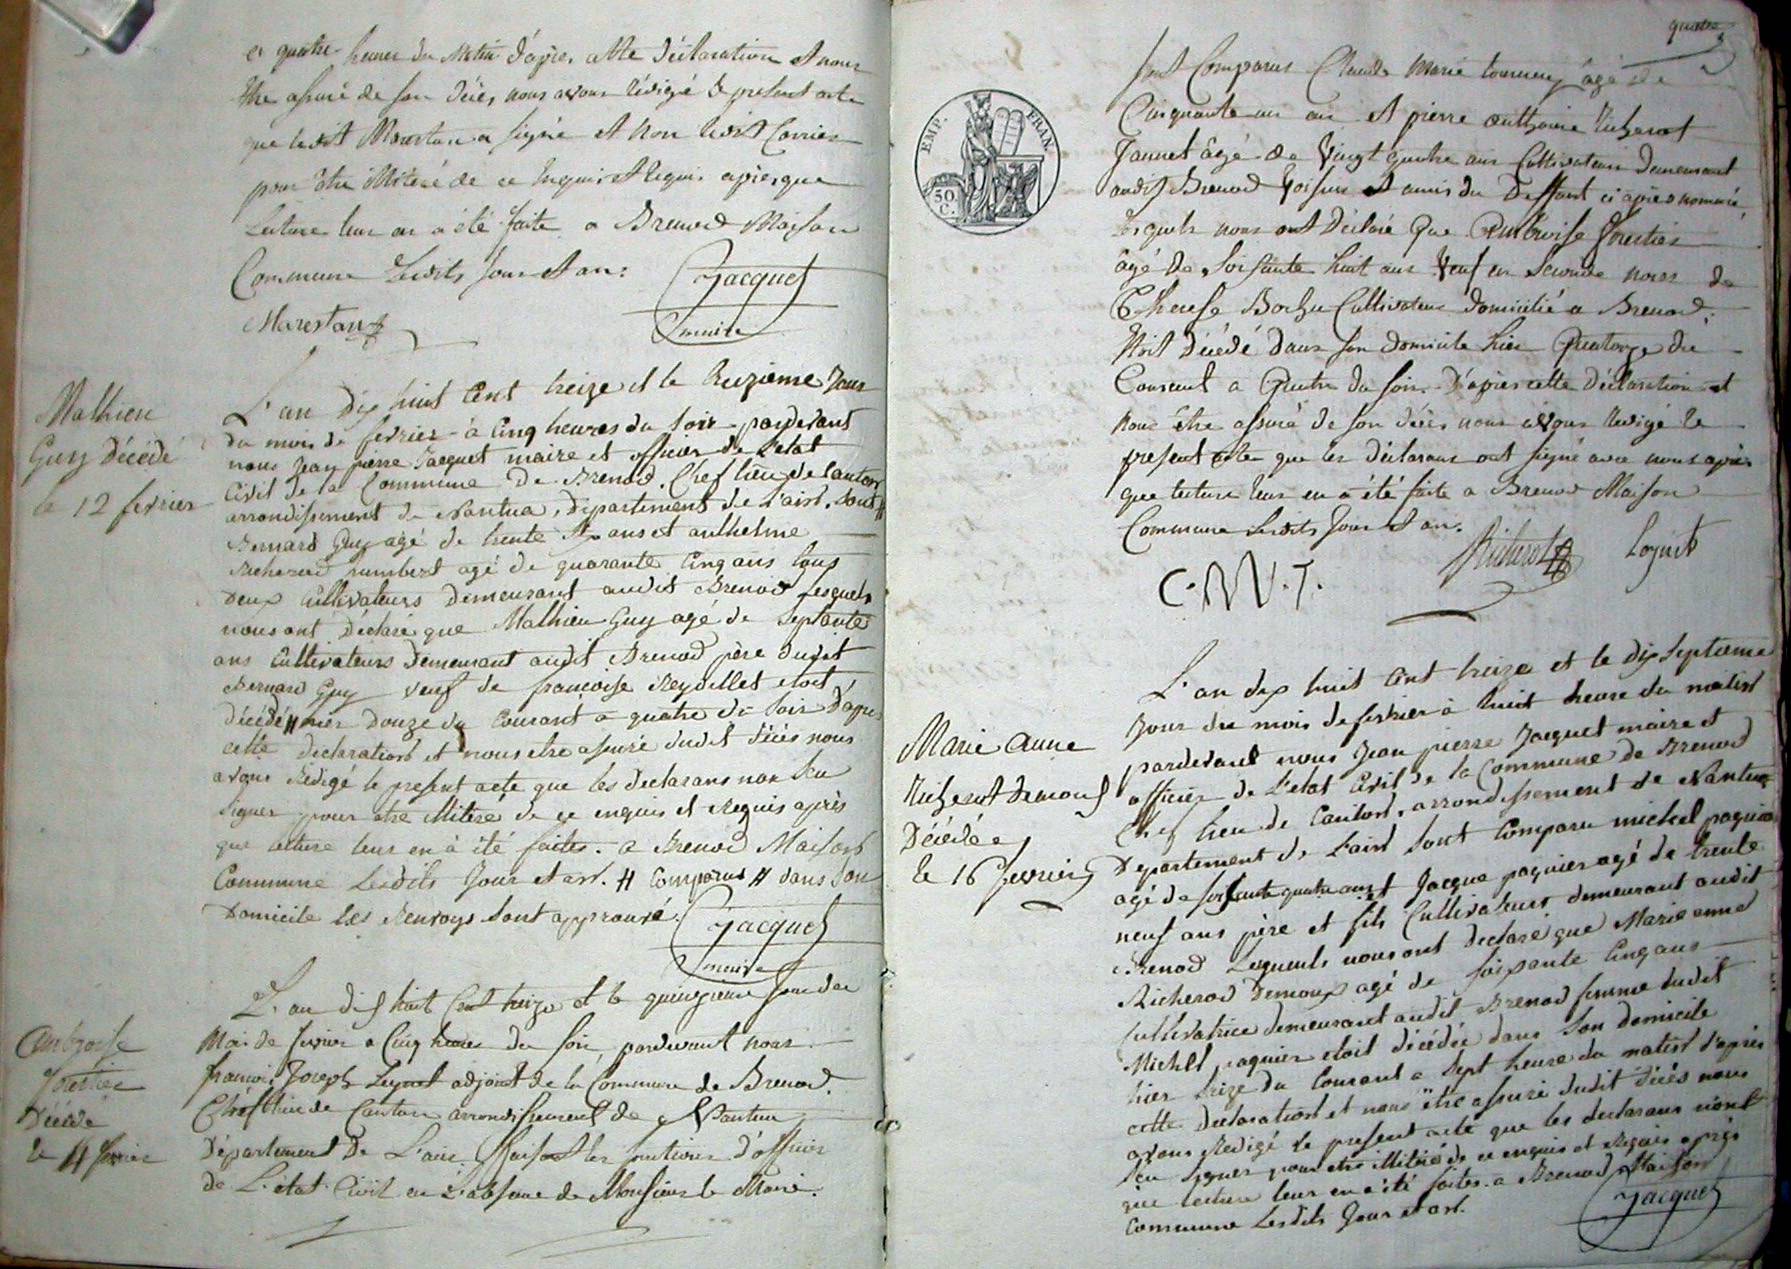 et quatre heures du Matin d'après cette déclaration et nous
être assuré de son décès, nous avons rédigé le présent acte
que ledit Marestan a signé et non ledit Carrier
pour être illiteré de ce Enquis et Requis après que
Lecture leur en a été faite a Brenod Maison
Commune Lesdits Jour et an.
Jacquet
maire
Marestan
Mathieu
Guy Décédé
le 12 fevrier
L'an dix huit Cent treize et le treizieme Jour
du mois de fevrier à Cinq heures du Soir pardevant
nous Jean pierre Jacquet maire et officier de L'etat
Civil de la Commune De Brenod, Chef lieu de Canton
arrondissement de Nantua, Département de L'ain, Sont #
Bernard Guy agé de trente ans et anthelme
Richerod humbert agé de quarante Cinq ans tous
Deux Cultivateurs Demeurant audit Brenod Lesquels
nous ont Déclaré que Mathieu Guy agé de Septante
ans Cultivateurs Demeurant audit Brenod père dudit
Bernard Guy Veuf de françoise Reydellet etoit
Décédé # hier Douze du Courant a quatre du Soir D'après
cette Declaration et nous etre assuré dudit Décès nous
avons Redigé le present acte que les declarans non Scu
Signer pour etre illiteré de ce enquis et Requis après
que lecture leur en à été faites. a Brenod Maison
Commune Lesdits Jour et an. # Comparus # dans Son
Domicile les Renvoys Sont approuvé.
Jacquet
maire
Ambroise
Décédé
le 14 fevrier
L'an dix huit Cent treize et le quinzieme Jour du
Mois de fevrier a Cinq heures du Soir, pardevant nous
françois Joseph adjoint de la Commune de Brenod.
Chef lieu de Canton arrondissement de Nantua
Département De L'ain faisant les fonctions d'officier
de L'état Civil en L'absence de Monsieur le Maire.
quatre
EMP. FRAN.
50 C.
Sont Comparus Claude Marie tournery âgé de
Cinquante un ans et pierre anthoine Richerot
Jannet âgé de Vingt quatre ans Cultivateurs Demeurant
audit Brenod Voisins et amis du Deffunt ci après nommé,
Lesquels nous ont Déclaré Que Ambroise
âgé de Soixante huit ans Veuf en Seconde noces de
Therese Bochu Cultivateur domicilié a Brenod.
Etoit Décédé dans Son domicile hier Quatorze du
Courant a Quatre du Soir. D'après cette Déclaration et
nous être assuré de Son décès nous avons rédigé le
present acte que les déclarans ont signé avec nous après
que lecture leur en a été faite a Brenod Maison
Commune Lesdits Jour et an.
C.M.T. Richerot
Marie anne
Richerod Demoux
Décédée
le 16 fevrier
L'an dix huit Cent treize et le dix Septieme
Jour du mois de fevrier à huit heure du matin
pardevant nous Jean pierre Jacquet maire et
officier de L'etat Civil de la Commune de Brenod
Chef lieu de Canton, arrondissement de Nantua
Departement de L'ain Sont Comparu michel paquier
agé de soixante quatre ans et Jacque paquier agé de trente
neuf ans père et fils Cultivateurs demeurant audit
Brenod Lesquels nous ont declaré que Marie anne
Richerod Demoux agé de Soixante Cinq ans
Cultivatrice demeurant audit Brenod femme dudit
Michel paquier etoit décédée dans Son domicile
hier Seize du Courant a Sept heure du matin d'après
cette declaration et nous être assuré dudit Décés nous
avons Redigé le present acte que les declarans n'ont
Scu Signer pour etre illiteré de ce enquis et Requis après
que lecture leur en a été faites. a Brenod Maison
Commune Lesdits Jour et an.
Jacquet